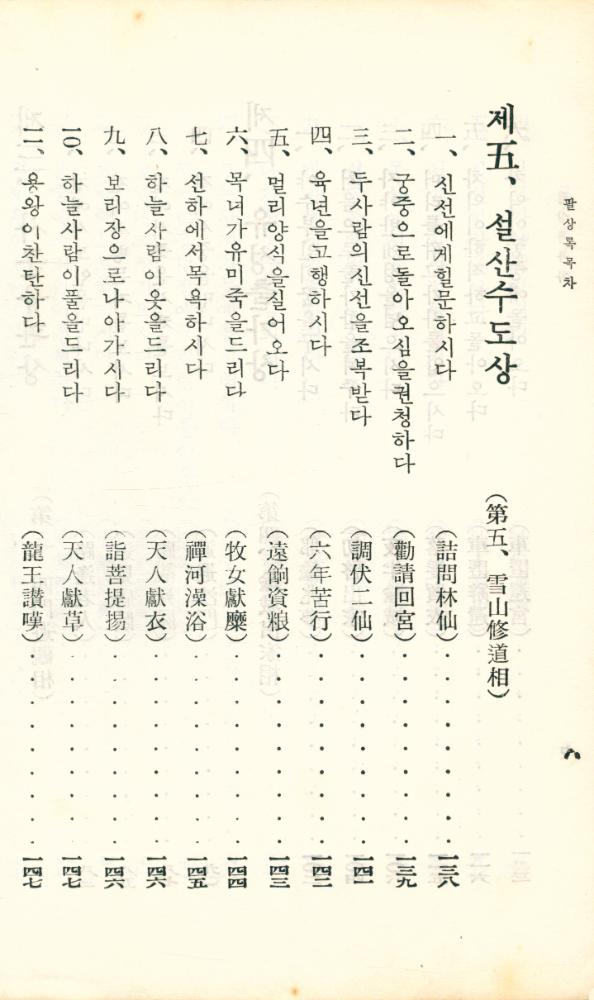 팔상록목차
제五、설산수도상 (第五、雪山修道相)
一、신선에게힐문하시다 (詰問林仙)・・・・・・・・・一三八
二、궁중으로돌아오심을권청하다 (勸請回宮)・・・・・・・・・一三九
三、두사람의신선을조복받다 (調伏二仙)・・・・・・・・・一四一
四、육년을고행하시다 (六年苦行)・・・・・・・・・一四二
五、멀리양식을실어오다 (遠餉資粮)・・・・・・・・・一四三
六、목녀가유미죽을드리다 (牧女獻糜)・・・・・・・・・一四四
七、선하에서목욕하시다 (禪河澡浴)・・・・・・・・・一四五
八、하늘사람이옷을드리다 (天人獻衣)・・・・・・・・・一四六
九、보리장으로나아가시다 (詣菩提場)・・・・・・・・・一四六
一〇、하늘사람이풀을드리다 (天人獻草)・・・・・・・・・一四七
一一、용왕이찬탄하다 (龍王讃嘆)・・・・・・・・・一四七
八